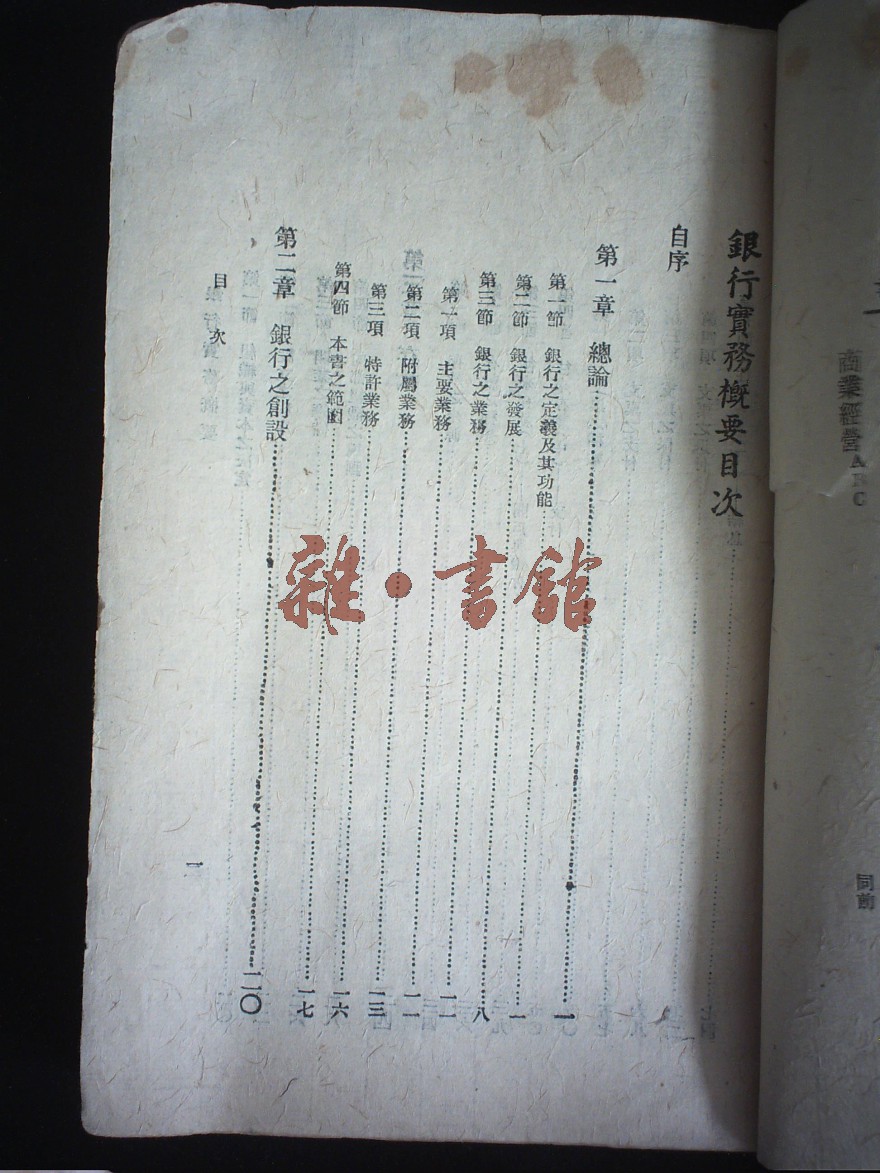 商業經營ABC
同前
銀行實務概要目次
自序
第一章 總論……一
第一節 銀行之定義及其功能……一
第二節 銀行之發展……八
第三節 銀行之業務……一一
第一項 主要業務……一一
第二項 附屬業務……一三
第三項 特許業務……一六
第四節 本書之範圍……一七
第二章 銀行之創設……二〇
目次
一
雜·書館